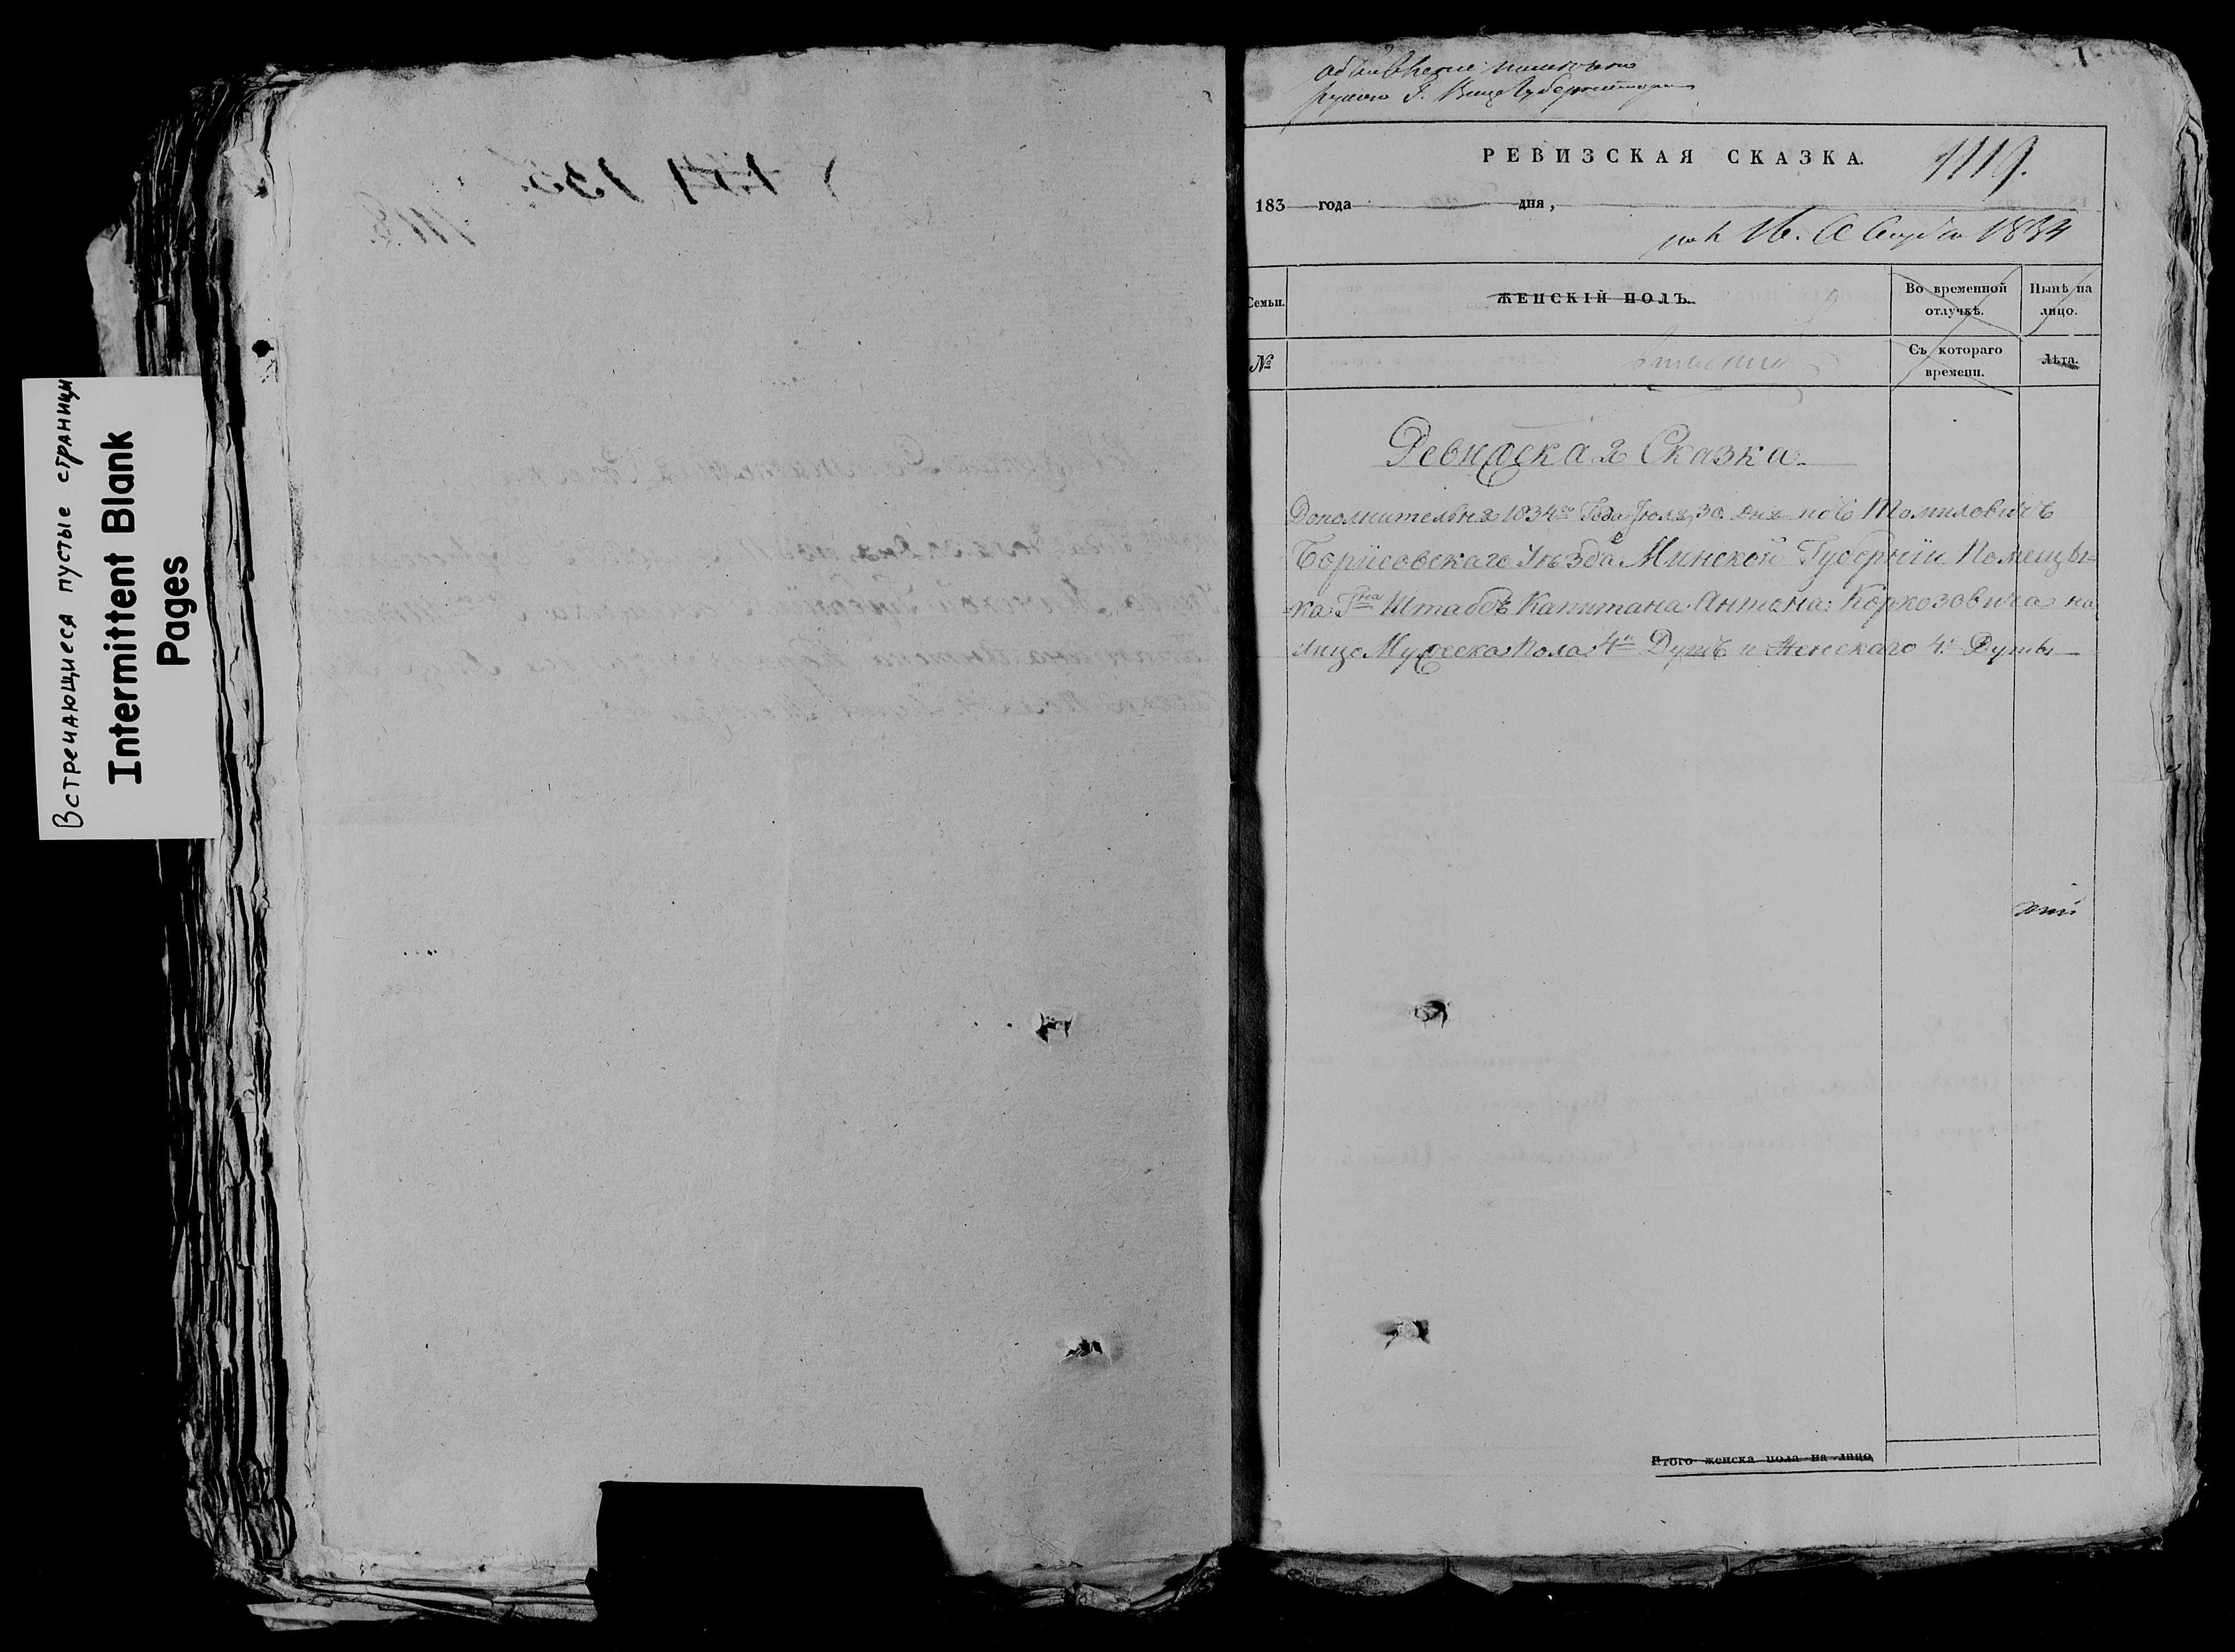 Встречающиеся пустые страницы
Intermittent Blank
Pages
РЕВИЗСКАЯ СКАЗКА.
1119.
183 года дня,
16. Августа 1834
Семьи.
ЖЕНСКІЙ ПОЛЪ.
Во временной отлучкѣ.
Нынѣ на лицо.
№
Съ котораго времени.
Лѣта.
Ревизская Сказка
Дополнительня 1834го Года Іюля 30 дня
Борисовскаго Уѣзда Минской Губерніи Помещы-
ка Гна Штабсъ Капитана Антона на
лицо Мужеска Пола 4 Душъ и Женскаго 4 Душы
Итого женска пола на лицо